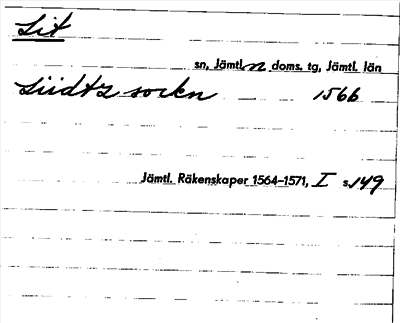 Lit
sn, Jämtl. n doms. tg, Jämtl. län
Liidtz sockn 1566
Jämtl. Räkenskaper 1564–1571, I s. 149